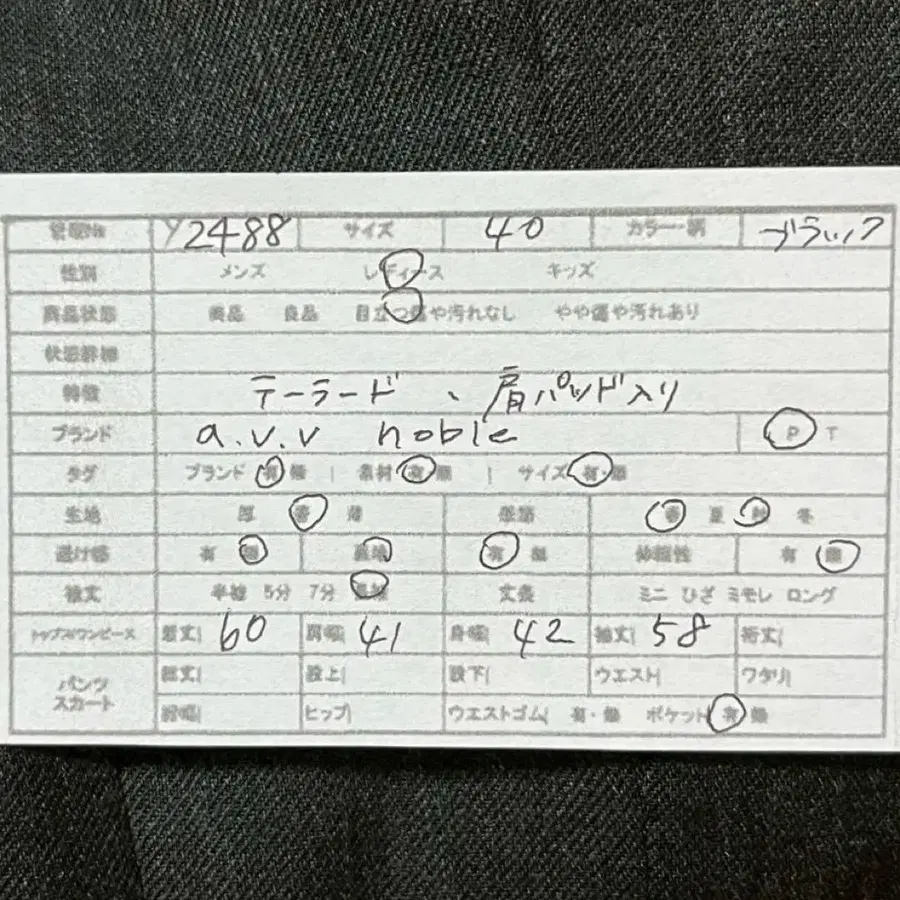 管理No Y2488 サイズ 40 カラー・柄 ブラック
性別 メンズ レディース キッズ
商品状態 美品 良品 目立つ傷や汚れなし やや傷や汚れあり
状態詳細
特徴 テーラード、肩パッド入り
ブランド a.v.v noble P T
タグ ブランド 有 無 | 素材 有 無 | サイズ 有・無
生地 厚 普 薄 季節 春 夏 秋 冬
透け感 有 無 裏地 有 無 伸縮性 有 無
袖丈 半袖 5分 7分 長袖 丈感 ミニ ひざ ミモレ ロング
トップス/ワンピース 着丈| 60 肩幅| 41 身幅| 42 袖丈| 58 裄丈|
パンツ スカート 総丈| 股上| 股下| ウエスト| ワタリ|
裾幅| ヒップ| ウエストゴム| 有・無 ポケット| 有 無